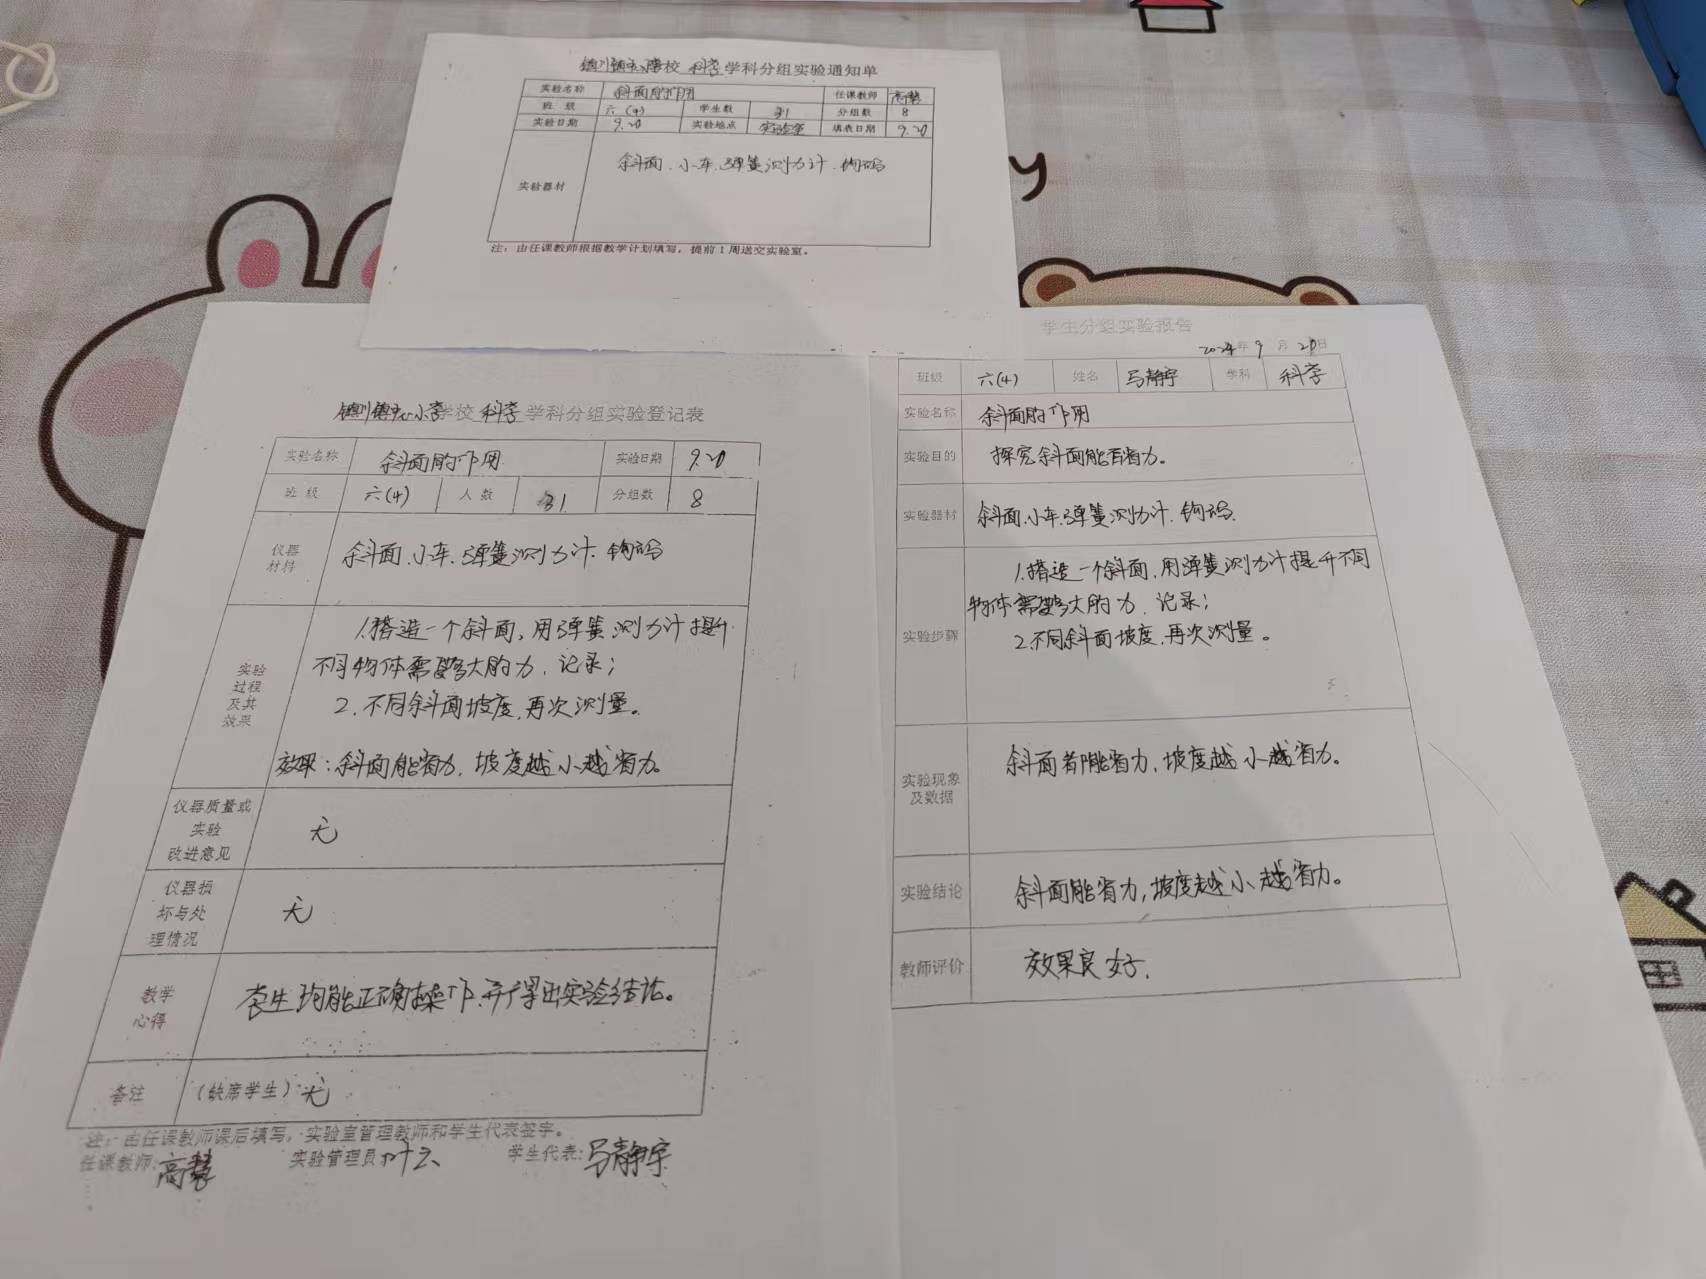 镇川镇中心小学校 科学 学科分组实验通知单
实验名称 斜面的作用 任课教师 高慧
班级 六(4) 学生数 31 分组数 8
实验日期 9.20 实验地点 实验室 填表日期 9.20
实验器材 斜面.小车.弹簧测力计.钩码
注:由任课教师根据教学计划填写,提前1周送交实验室。
镇川镇中心小学学校 科学 学科分组实验登记表
实验名称 斜面的作用 实验日期 9.20
班级 六(4) 人数 31 分组数 8
仪器
材料
斜面.小车.弹簧测力计.钩码
实验
过程
及其
效果
1.搭造一个斜面,用弹簧测力计提升
不同物体需要多大的力,记录;
2.不同斜面坡度,再次测量。
效果:斜面能省力,坡度越小越省力。
仪器质量或
实验
改进意见
无
仪器损
坏与处
理情况
无
教学
心得
学生均能正确操作,并得出实验结论。
备注 (缺席学生):无
注:由任课教师课后填写,实验室管理教师和学生代表签字。
任课教师:高慧 实验管理员 学生代表:马静宇
学生分组实验报告
2024年9月20日
班级 六(4) 姓名 马静宇 学科 科学
实验名称 斜面的作用
实验目的 探究斜面能否省力。
实验器材 斜面.小车.弹簧测力计.钩码.
实验步骤
1.搭造一个斜面,用弹簧测力计提升不同
物体需要多大的力,记录;
2.不同斜面坡度,再次测量。
实验现象
及数据
斜面能省力,坡度越小越省力。
实验结论 斜面能省力,坡度越小,越省力。
教师评价 效果良好.